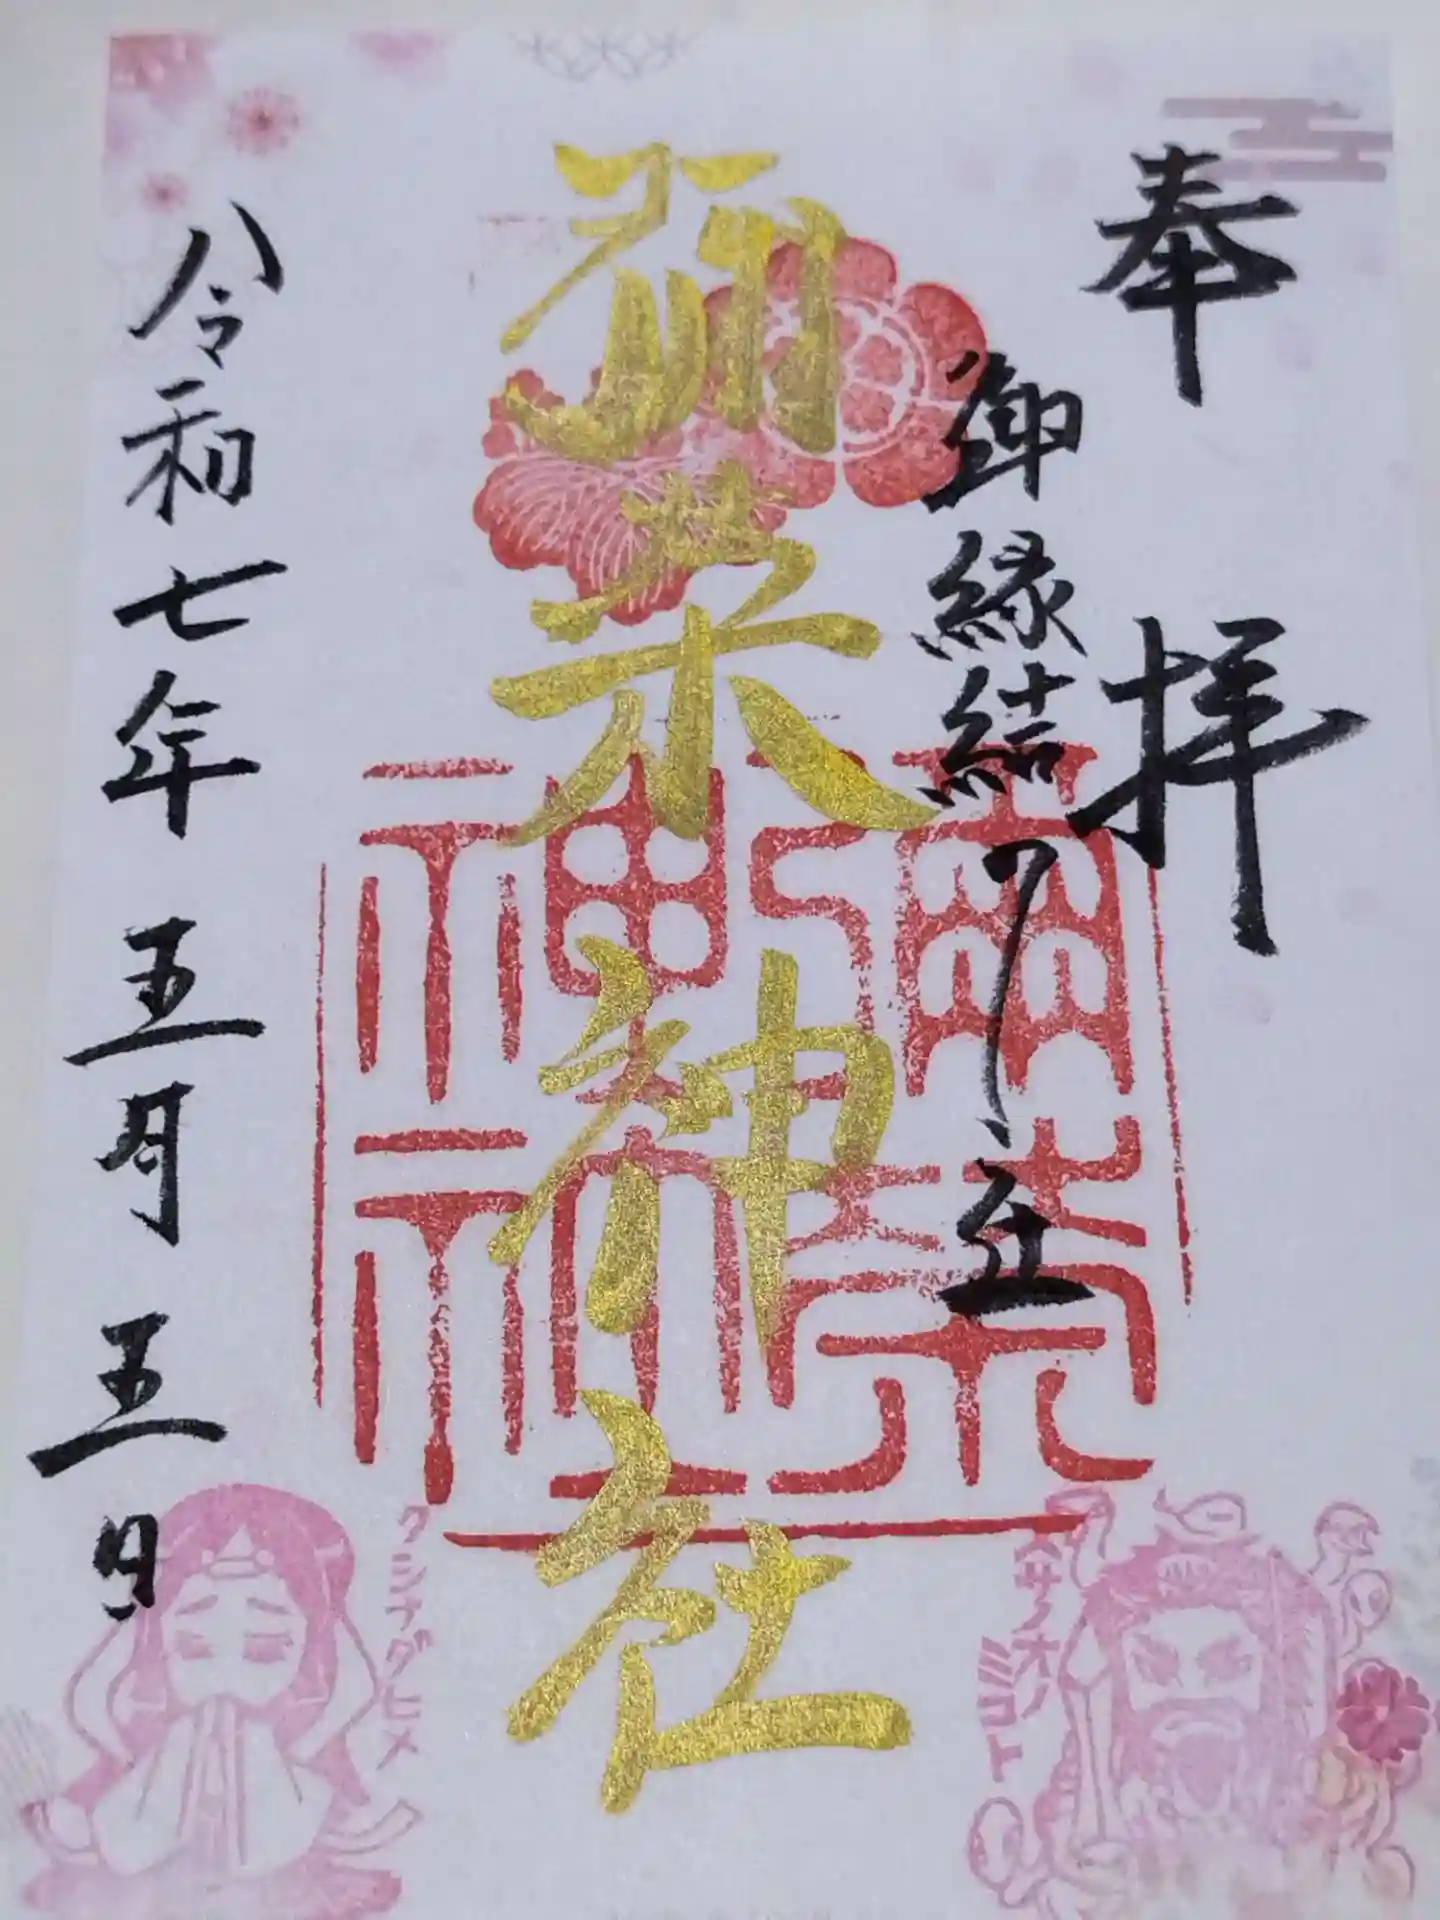 奉拝
御縁結
彌榮
神社
弥栄神社
令和七年五月五日
スサノオノミコト
クシナダヒメ